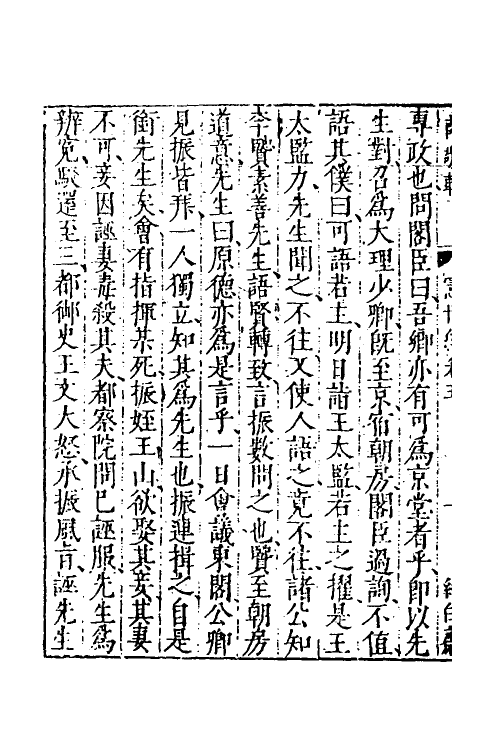 專政也問閣臣曰吾鄉亦有可爲京堂者乎卽以先
生對召爲大理少卿旣至京宿朝房閣臣過詢不值
語其僕曰可語若主明日詣王太監若主之擢是王
太監力先生聞之不往又使人語之竟不往諸公知
李賢素善先生語賢轉致言振數問之也賢至朝房
道意先生曰原德亦爲是言乎一日會議東閣公卿
見振皆拜一人獨立知其爲先生也振連揖之自是
銜先生矣會有指揮某死振姪王山欲娶其妾其妻
不可妾因誣妻毒殺其夫都察院問已誣服先生爲
辨寃駁還至三都御史王文大怒承振風旨誣先生